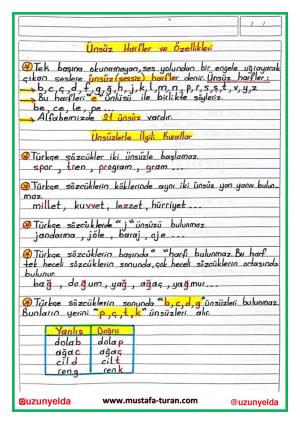 Ünsüz Harfler ve Özellikleri
Tek başına okunamayan, ses yolundan bir engele uğrayarak
çıkan seslere ünsüz (sessiz) harfler denir. Ünsüz harfler:
b, c, ç, d, f, g, ğ, h, j, k, l, m, n, p, r, s, ş, t, v, y, z
Bu harfleri "e" ünlüsü ile birlikte söyleriz.
be, ce, le, pe...
Alfabemizde 21 ünsüz vardır.
Ünsüzlerle İlgili Kurallar
Türkçe sözcükler iki ünsüzle başlamaz.
spor, tren, program, gram...
Türkçe sözcüklerin köklerinde aynı iki ünsüz yan yana bulun-
maz.
millet, kuvvet, lezzet, hürriyet...
Türkçe sözcüklerde "j" ünsüzü bulunmaz.
jandarma, jöle, baraj, oje...
Türkçe sözcüklerin başında "ğ" harfi bulunmaz. Bu harf
tek heceli sözcüklerin sonunda, çok heceli sözcüklerin ortasında
bulunur.
bağ, doğum, yağ, ağaç, yağmur...
Türkçe sözcüklerin sonunda "b, c, d, g" ünsüzleri bulunmaz.
Bunların yerini "p, ç, t, k" ünsüzleri alır.
Yanlış Doğru
dolab dolap
ağac ağaç
cild cilt
reng renk
@uzunyelda www.mustafa-turan.com @uzunyelda